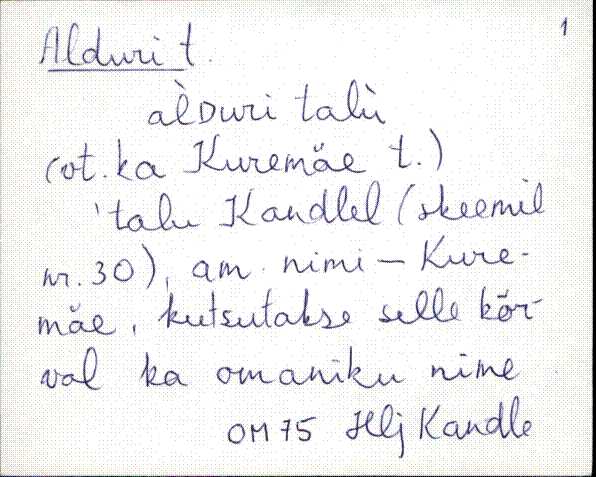 1
Alduri t.
al̀Duri talù
(vt. ka Kuremäe t.)
'talu Kandlel (skeemil
nr. 30), am. nimi – Kure-
mäe, kutsutakse selle kõr-
val ka omaniku nime
OM 75 Hlj Kandle